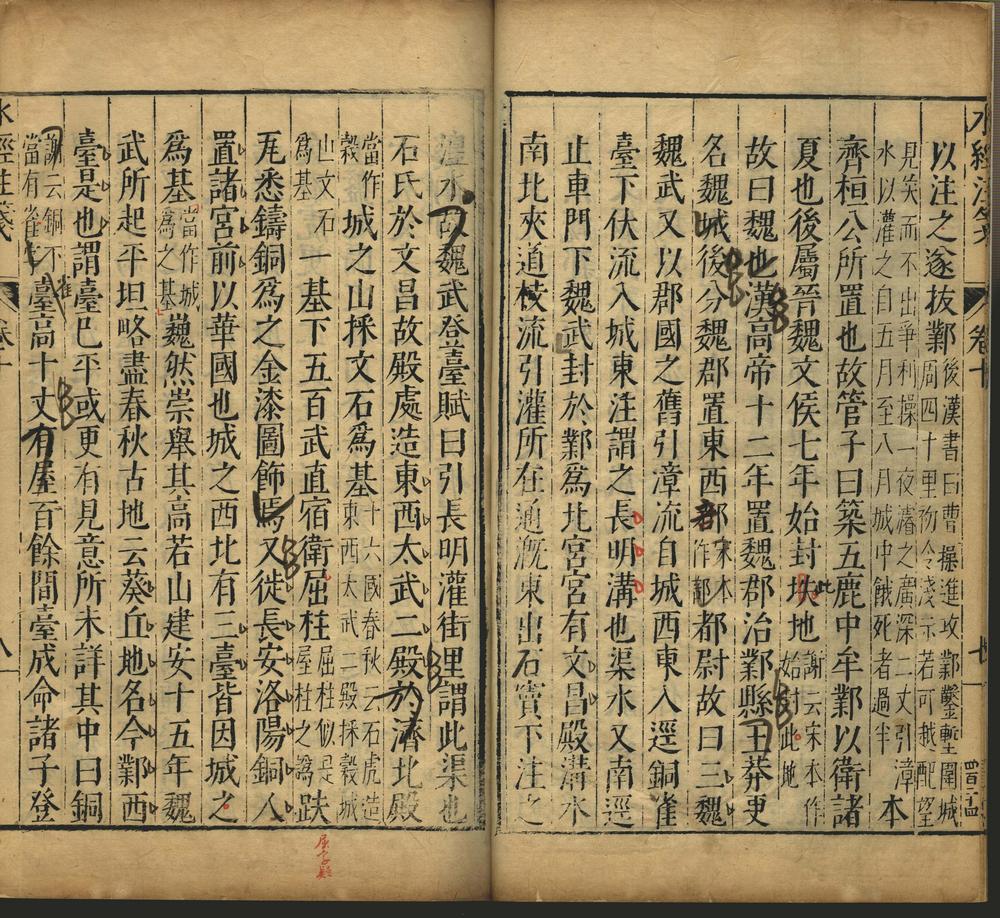 水經注箋 卷十 七
以注之遂拔鄴後漢書曰曹操進攻鄴鑿塹圍城
周四十里初令淺示若可越配望
見笑而不出爭利操一夜濬之廣深二丈引漳
水以灌之自五月至八月城中餓死者過半本
齊桓公所置也故管子曰築五鹿中牟鄴以衛諸
夏也後屬晉魏文侯七年始封地謝云宋本作
始封此地
故曰魏也漢高帝十二年置魏郡治鄴縣王莽更
名魏城後分魏郡置東西部宋本
作都都尉故曰三魏
魏武又以郡國之舊引漳流自城西東入逕銅雀
臺下伏流入城東注謂之長明溝也渠水又南逕
止車門下魏武封於鄴爲北宮宮有文昌殿溝水
南北夾道枝流引灌所在通漑東出石竇下注之
湟水故魏武登臺賦曰引長明灌街里謂此渠也
石氏於文昌故殿處造東西太武二殿於濟北殿
當作
穀城之山採文石爲基十六國春秋云石虎造
東西太武二殿採穀城
山文石
爲基一基下五百武直宿衛屈柱屈柱似是
屋柱之譌趺
瓦悉鑄銅爲之金漆圖飾焉又徙長安洛陽銅人
置諸宮前以華國也城之西北有三臺皆因城之
爲基當作城
爲之基巍然崇舉其高若山建安十五年魏
武所起平坦略盡春秋古地云葵丘地名今鄴西
臺是也謂臺巳平或更有見意所未詳其中曰銅
謝云銅下
當有雀字臺高十丈有屋百餘間臺成命諸子登
水經注箋 卷十 八